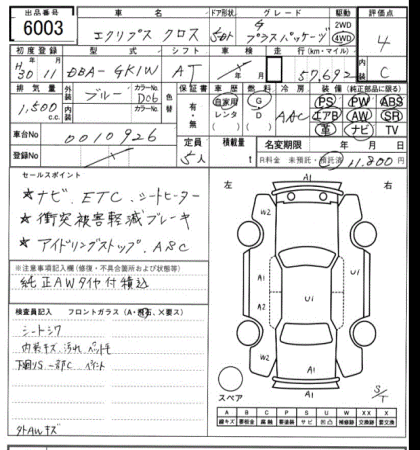 出品番号 車名 ドア形状 グレード 駆動 評価点
6003 エクリプス クロス 5Dr G プラスパッケージ 2WD 4WD 4
初度登録 型式 シフト 車検 走行(km・マイル) 内装
H30 11 DBA-GK1W AT 57,692 C
排気量 外装 ブルー カラーNo. D06 色替 保証書 車歴 燃料 冷房 装備(純正部品に限る)
1,500 c.c. 内装 カラーNo. 有・無 自家用 レンタ G D AAC PS PW ABS
エアB AW SR
革 ナビ TV
車台No 0010926 定員 5人 積載量 t 名変期限 年 月 日
登録No R料金 未預託・預託済 11,800円
セールスポイント
★ナビ、ETC、シートヒーター
★衝突被害軽減ブレーキ
★アイドリングストップ、ASC
※注意事項記入欄(修復・不具合箇所および状態等)
純正AWタイヤ付積込
検査員記入 フロントガラス(A・飛石、X要ス)
シートシワ
内装キズ、汚れ ペット毛
下回りS 一部C ペイント
外AWキズ
左 右
A1
W2
A1 U1 U1
A2
W2
A1
スペア
S/T
A B C P S U W X XX
線キズ 要板金 腐蝕 要塗装 サビ 凹凸 補修跡 要交換 交換済